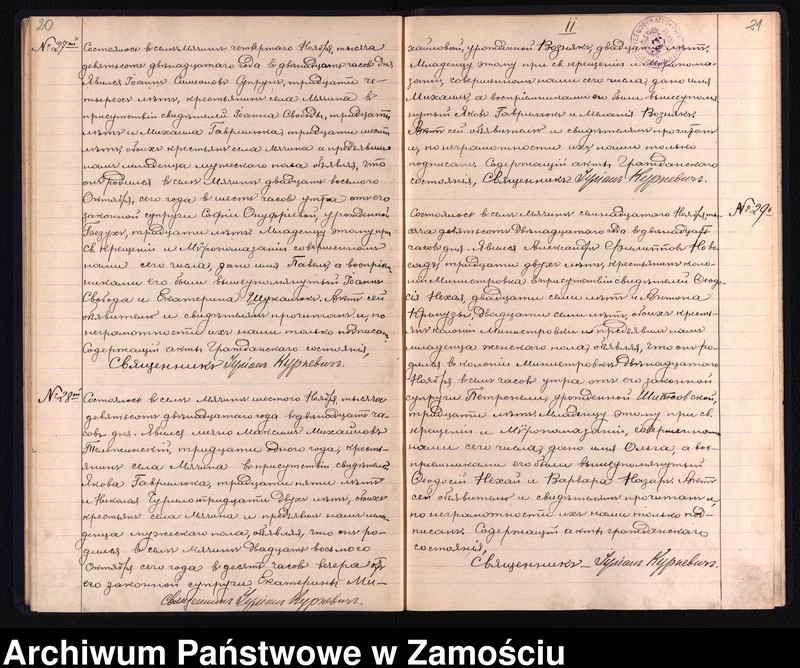 20
№ 27ой Состоялось в селе Мячине четвертаго Ноября, тысяча
девятьсот двенадцатаго года в двенадцать часов дня
Явился Іоанн Симеонов Фурун, тридцати че-
тырех лет, крестьянин села Мячина в
присутствіи свидетелей Іоанна Свободы, тридцати
лет и Михаила Гаврилюка, тридцати шести
лет, обоих крестьян села Мячина и предъявил
нам младенца мужескаго пола объявляя, что
он родился в селе Мячине двадцать восьмаго
Октября, сего года в шесть часов утра от его
законной супруги Софіи Онуфріевой, урожденной
тридцати лет. Младенцу этому при
Св. крещеніи и Мѵропомазаніи совершенном
нами сего числа, дано имя Павел, а воспріем-
никами его были вышеупомянутый Іоанн
Свобода и Екатерина Шукалюк. Акт сей
объявителю и свидетелям прочитан и, по
неграмотности их нами только подписан.
Содержащій акты Гражданскаго состоянія,
Священник Іуліан Куркевич.
№ 28ой Состоялось в селе Мячине шестого Ноября, тысяча
девятьсот двенадцатаго года в двенадцать ча-
сов дня. Явился лично Максим Михайлов
тридцати одного года, кресть-
янин села Мячина в присутствіи свидетелей
Якова Гаврилюка, тридцати пяти лет
и Николая Чурило тридцати двух лет, обоих
крестьян села Мячина и предъявил нам мла-
денца мужескаго пола, объявляя, что он ро-
дился в селе Мячине двадцать восьмаго
Октября сего года в десять часов вечера от
его законной супруги Екатерины Ми-
Священник Іуліан Куркевич.
II
21
хайловой, урожденной Возняк, двадцати лет.
Младенцу этому при св. крещеніи и Мѵропома-
заніи, совершенном нами сего числа, дано имя
Михаил, а воспріемниками его были вышеупомя-
нутый Яков Гаврилюк и Меланія Возняк.
Акт сей объявителю и свидетелям прочитан
и, по неграмотности их нами только
подписан. Содержащій акты Гражданского
состоянія, Священник Іуліан Куркевич.
№ 29й
Состоялось в селе Мячине семнадцатаго Ноября, ты-
сяча девятьсот двенадцатаго года в двенадцать
часов дня. Явился Александр Филиппов Ново-
сад, тридцати двух лет, крестьянин коло-
ніи Министровка в присутствіи свидетелей Ѳеодо-
сія Нехая, двадцати семи лет и Антона
двадцати семи лет, обоих кресть-
ян колоніи Министровки и предъявил нам
младенца женскаго пола, объявляя, что он ро-
дился в колоніи Министровке двенадцатаго
Ноября в семь часов утра от его законной
супруги Петронели, урожденной
тридцати лет. Младенцу этому при св.
крещеніи и Мѵропомазаніи, совершенном
нами сего числа, дано имя Ольга, а вос-
пріемниками его были вышеупомянутый
Ѳеодосій Нехай и Варвара Назар. Акт
сей объявителю и свидетелям прочитан и,
по неграмотности их нами только под-
писан. Содержащій акты гражданскаго
состоянія,
Священник Іуліан Куркевич.
Archiwum Państwowe w Zamościu